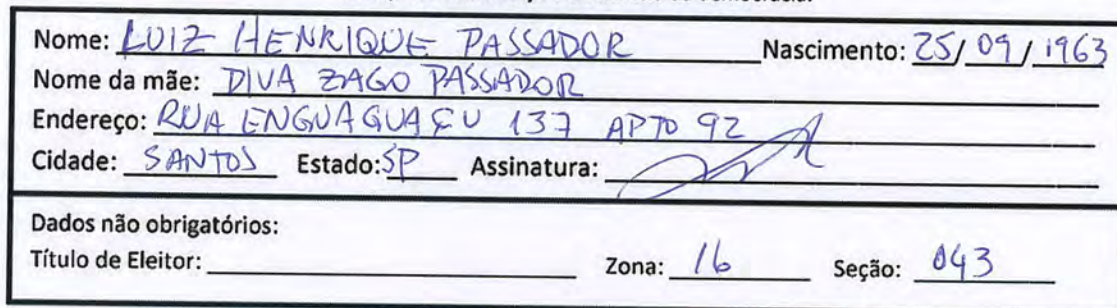 Nome: LUIZ HENRIQUE PASSADOR Nascimento: 25/09/1963
Nome da mãe: DIVA ZAGO PASSADOR
Endereço: RUA ENGUAGUAÇU 137 APTO 92
Cidade: SANTOS Estado: SP Assinatura:
Dados não obrigatórios:
Título de Eleitor: Zona: 16 Seção: 043